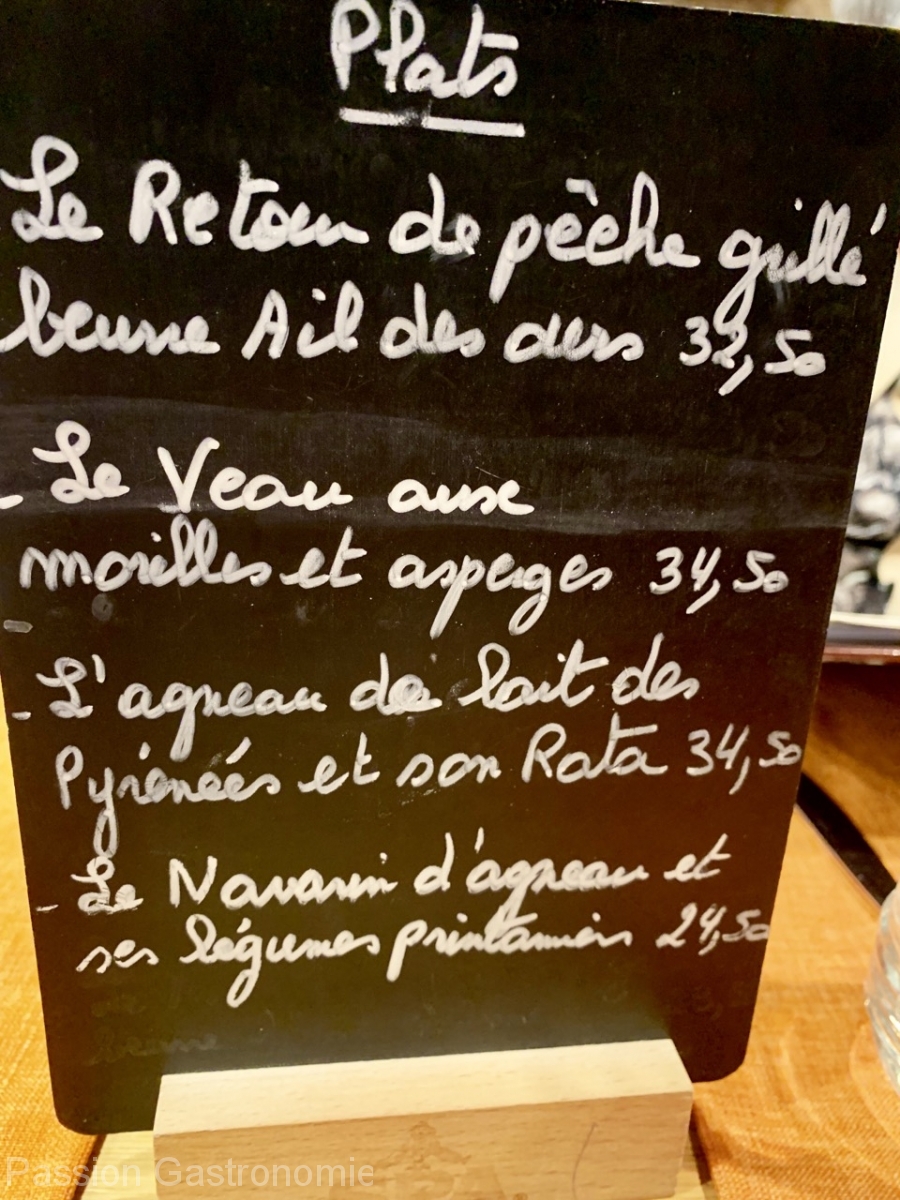 Plats
Le Retour de pèche grillé
beurre Ail des ours 32,50
- Le Veau aux
morilles et asperges 34,50
- L'agneau de lait des
Pyrénéés et son Rata 34,50
- Le Navarin d'agneau et
ses légumes printanniers 24,50
Passion Gastronomie